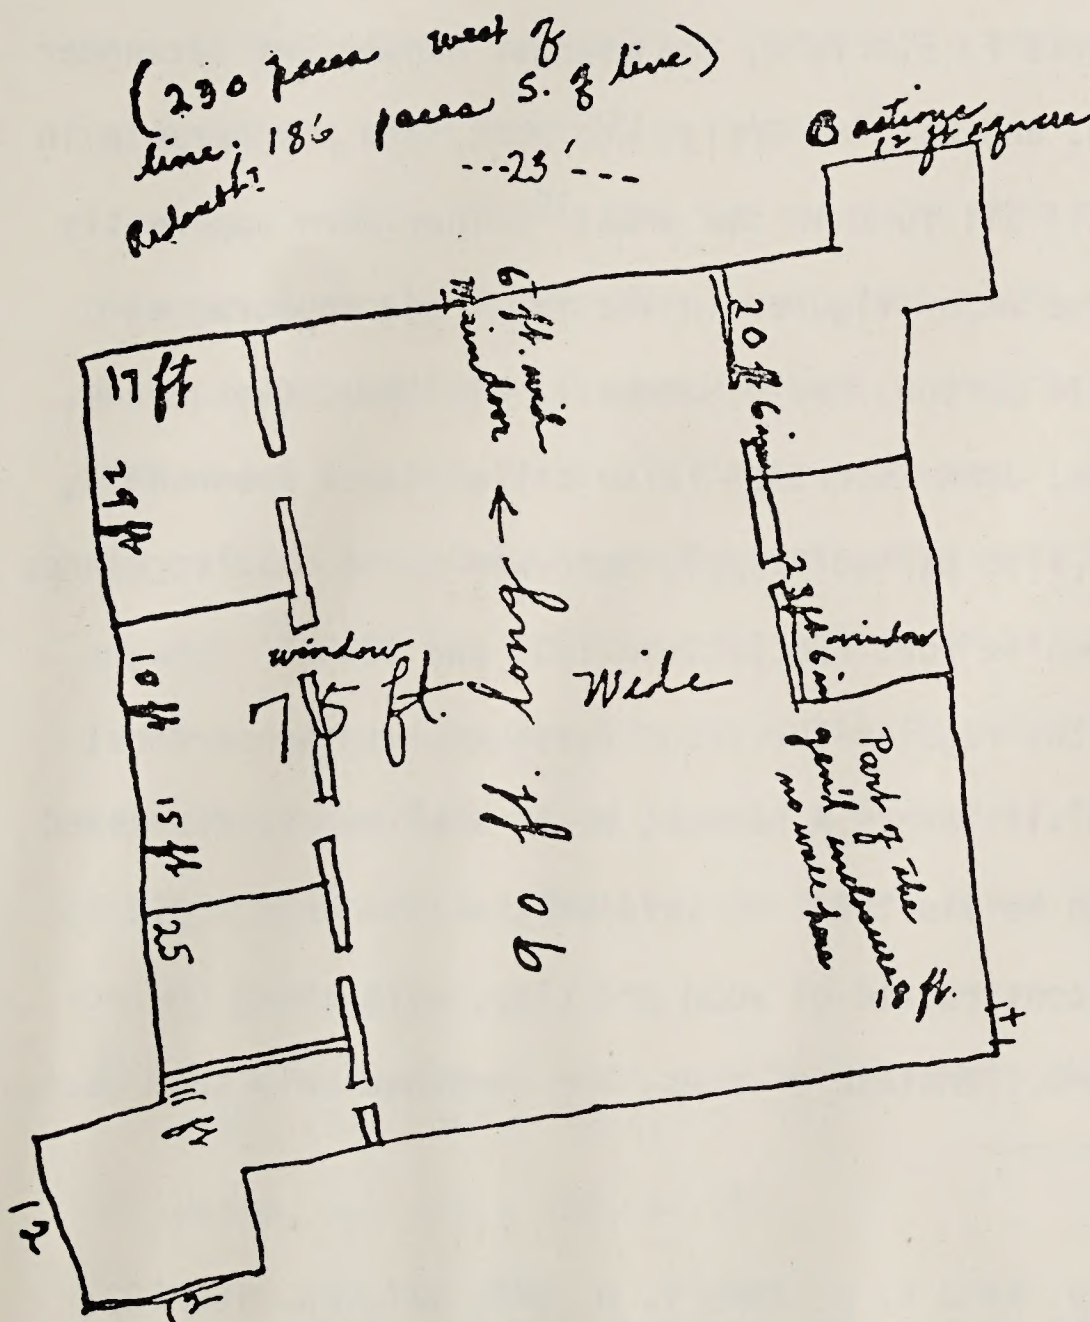 (230 paces west of
line; 186 paces S. of line)
Redoubt?
---23'----
Bastione
12 ft square
17 ft
29 ft
10 ft
15 ft
25
11 ft
12
12
6 ft. wid
Maindoor
20 ft 6 in
23 ft 6 in
window
window
75 ft. Wide
90 ft. long →
Part of the
gen'l enclosure
no wall here
18 ft.